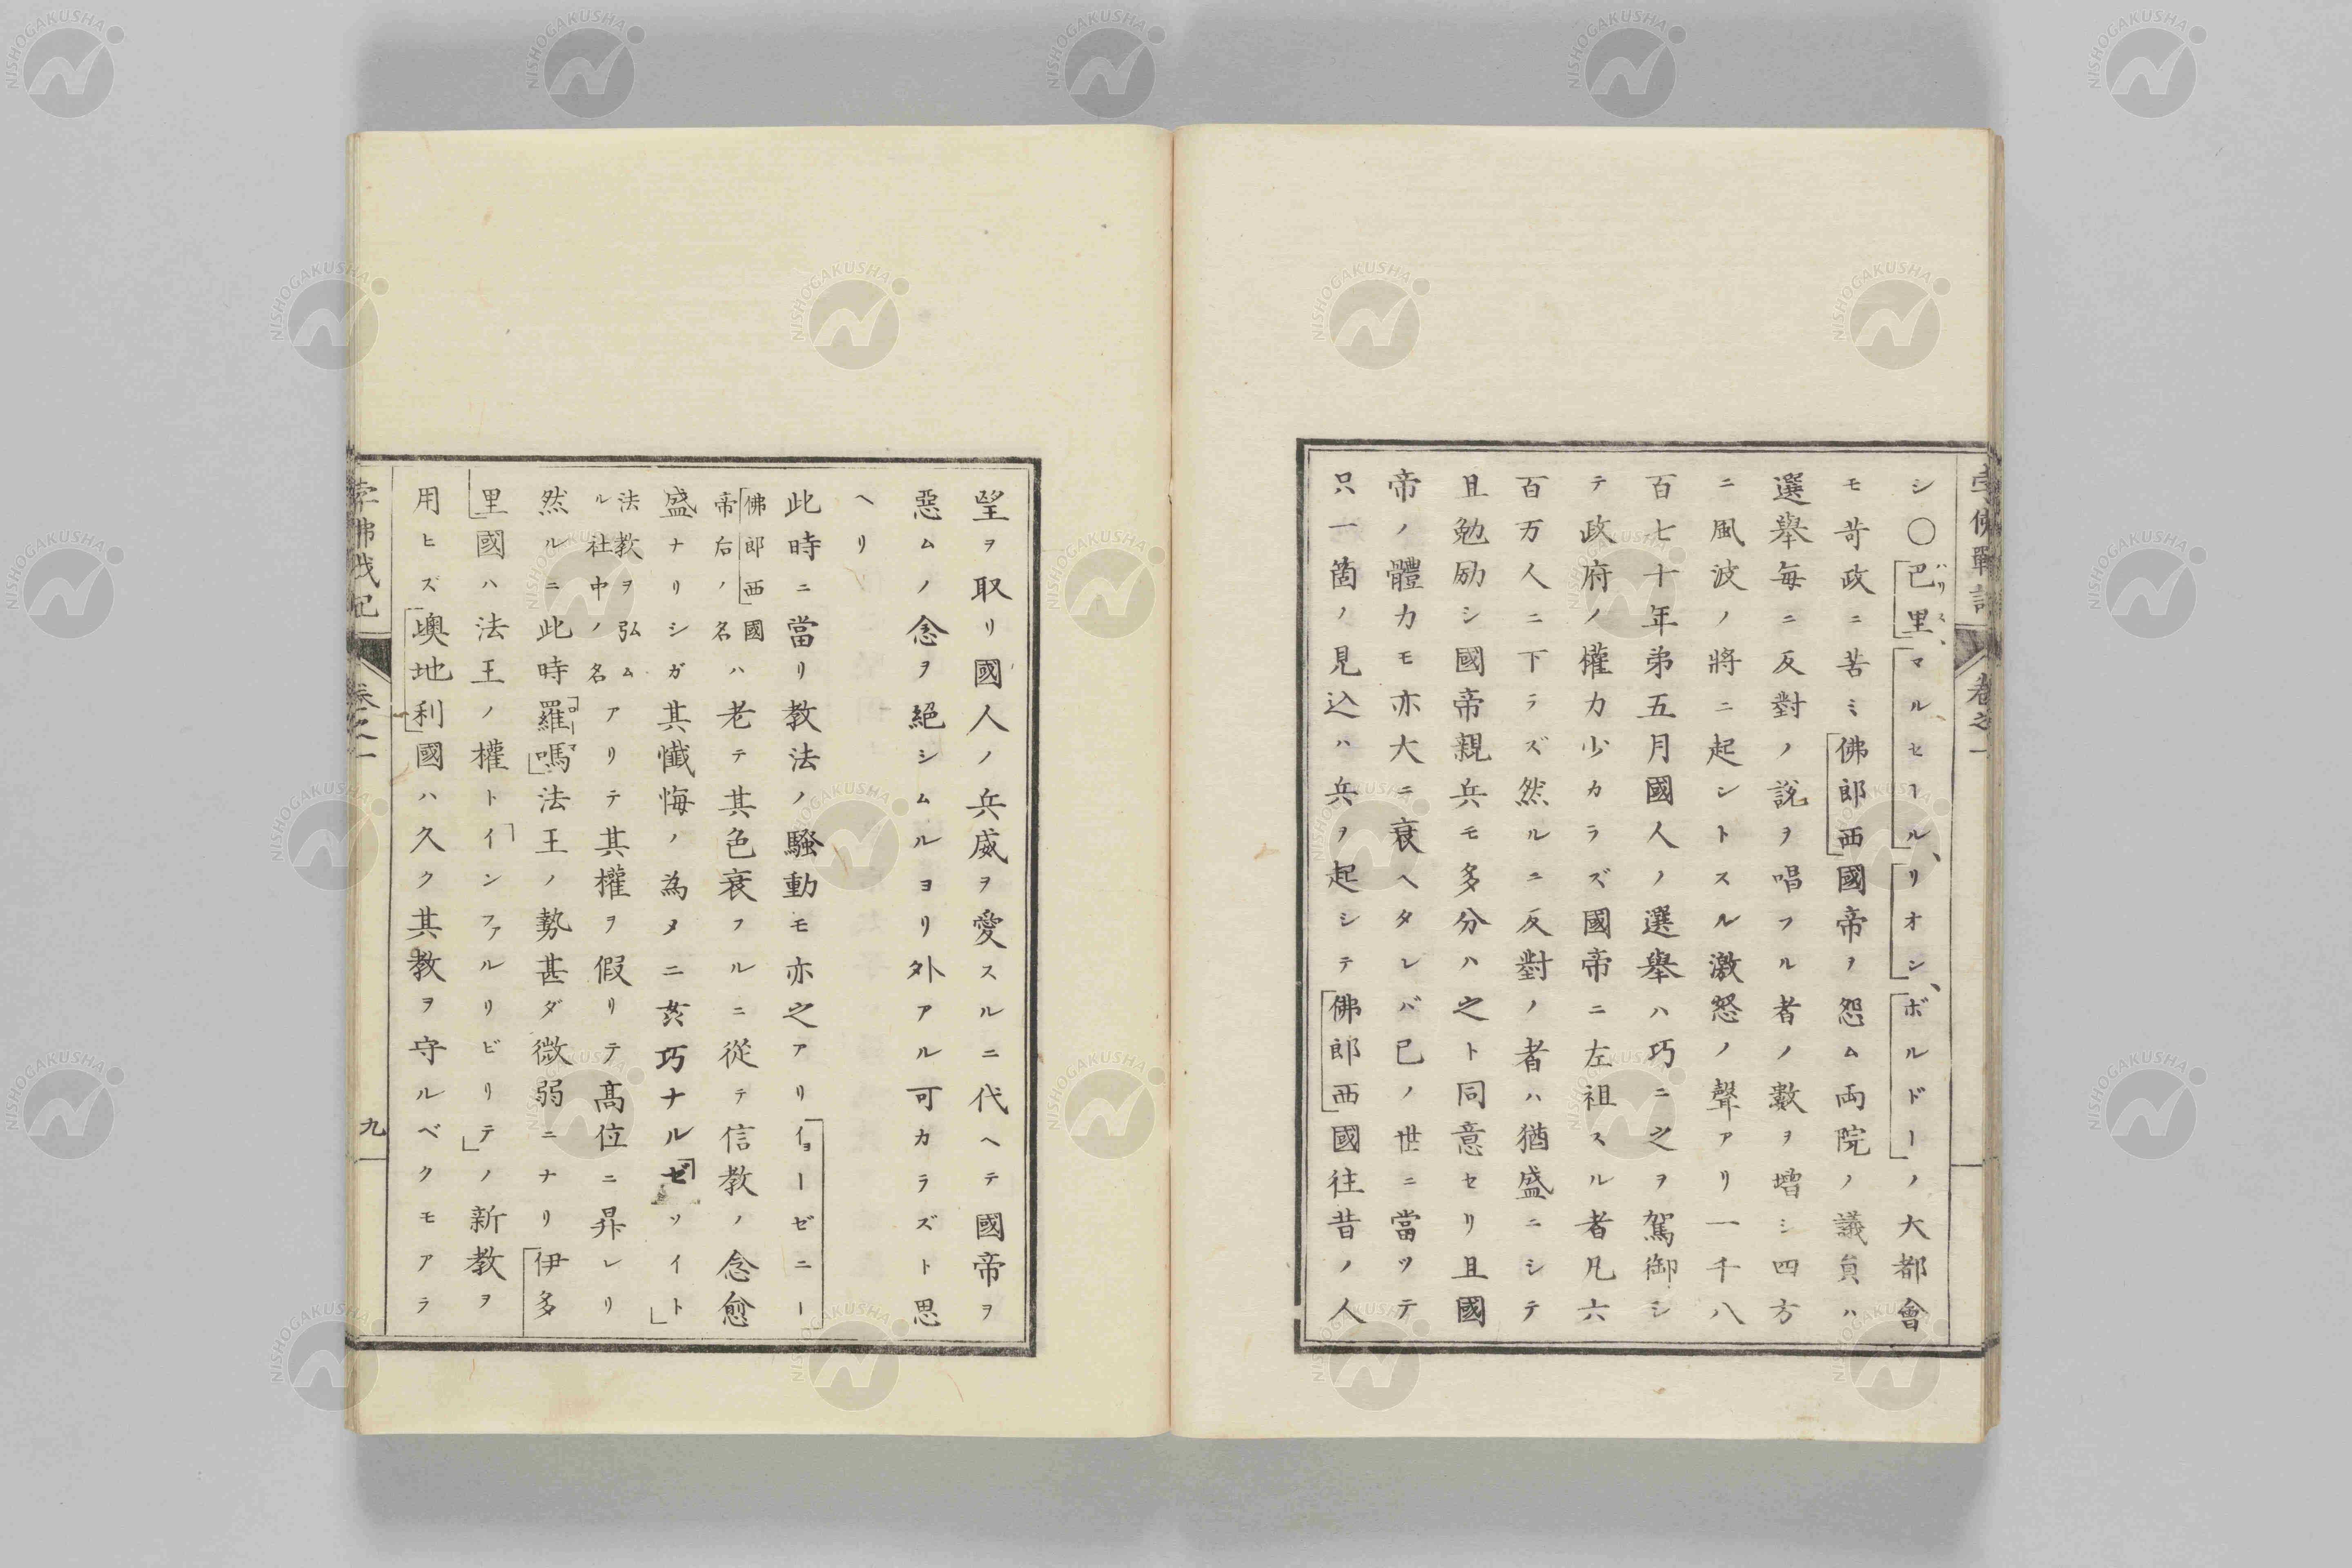 孛佛戰記 卷之一
シ〇巴里、マルセール、リオン、ボルドーノ大都會
モ苛政ニ苦ミ佛郎西國帝ヲ怨ム両院ノ議員ハ
選擧每ニ反對ノ說ヲ唱フル者ノ數ヲ增シ四方
ニ風波ノ將ニ起シトスル激怒ノ聲アリ一千八
百七十年第五月國人ノ選擧ハ巧ニ之ヲ駕御シ
テ政府ノ權力少カラズ國帝ニ左祖スル者凡六
百万人ニ下ラズ然ルニ反對ノ者ハ猶盛ニシテ
且勉励シ國帝親兵モ多分ハ之ト同意セリ且國
帝ノ體力モ亦大ニ衰ヘタレバ已ノ世ニ當ツテ
只一箇ノ見込ハ兵ヲ起シテ佛郎西國往昔ノ人
望ヲ取リ國人ノ兵威ヲ愛スルニ代ヘテ國帝ヲ
惡ムノ念ヲ絕シムルヨリ外アル可カラズト思
ヘリ
此時ニ當リ教法ノ騷動モ亦之アリイョーゼニー
佛郎西國
帝后ノ名
ハ老テ其色衰フルニ從テ信教ノ念愈
盛ナリシガ其懺悔ノ為メニ亥巧ナルゼソイト
法教ヲ弘ム
ル社中ノ名
アリテ其權ヲ假リテ髙位ニ昇レリ
然ルニ此時羅嗎法王ノ勢甚ダ微弱ニナリ伊多
里國ハ法王ノ權トインファルリビリテノ新教ヲ
用ヒズ墺地利國ハ久ク其教ヲ守ルベクモアラ
孛佛戰記 卷之一 九